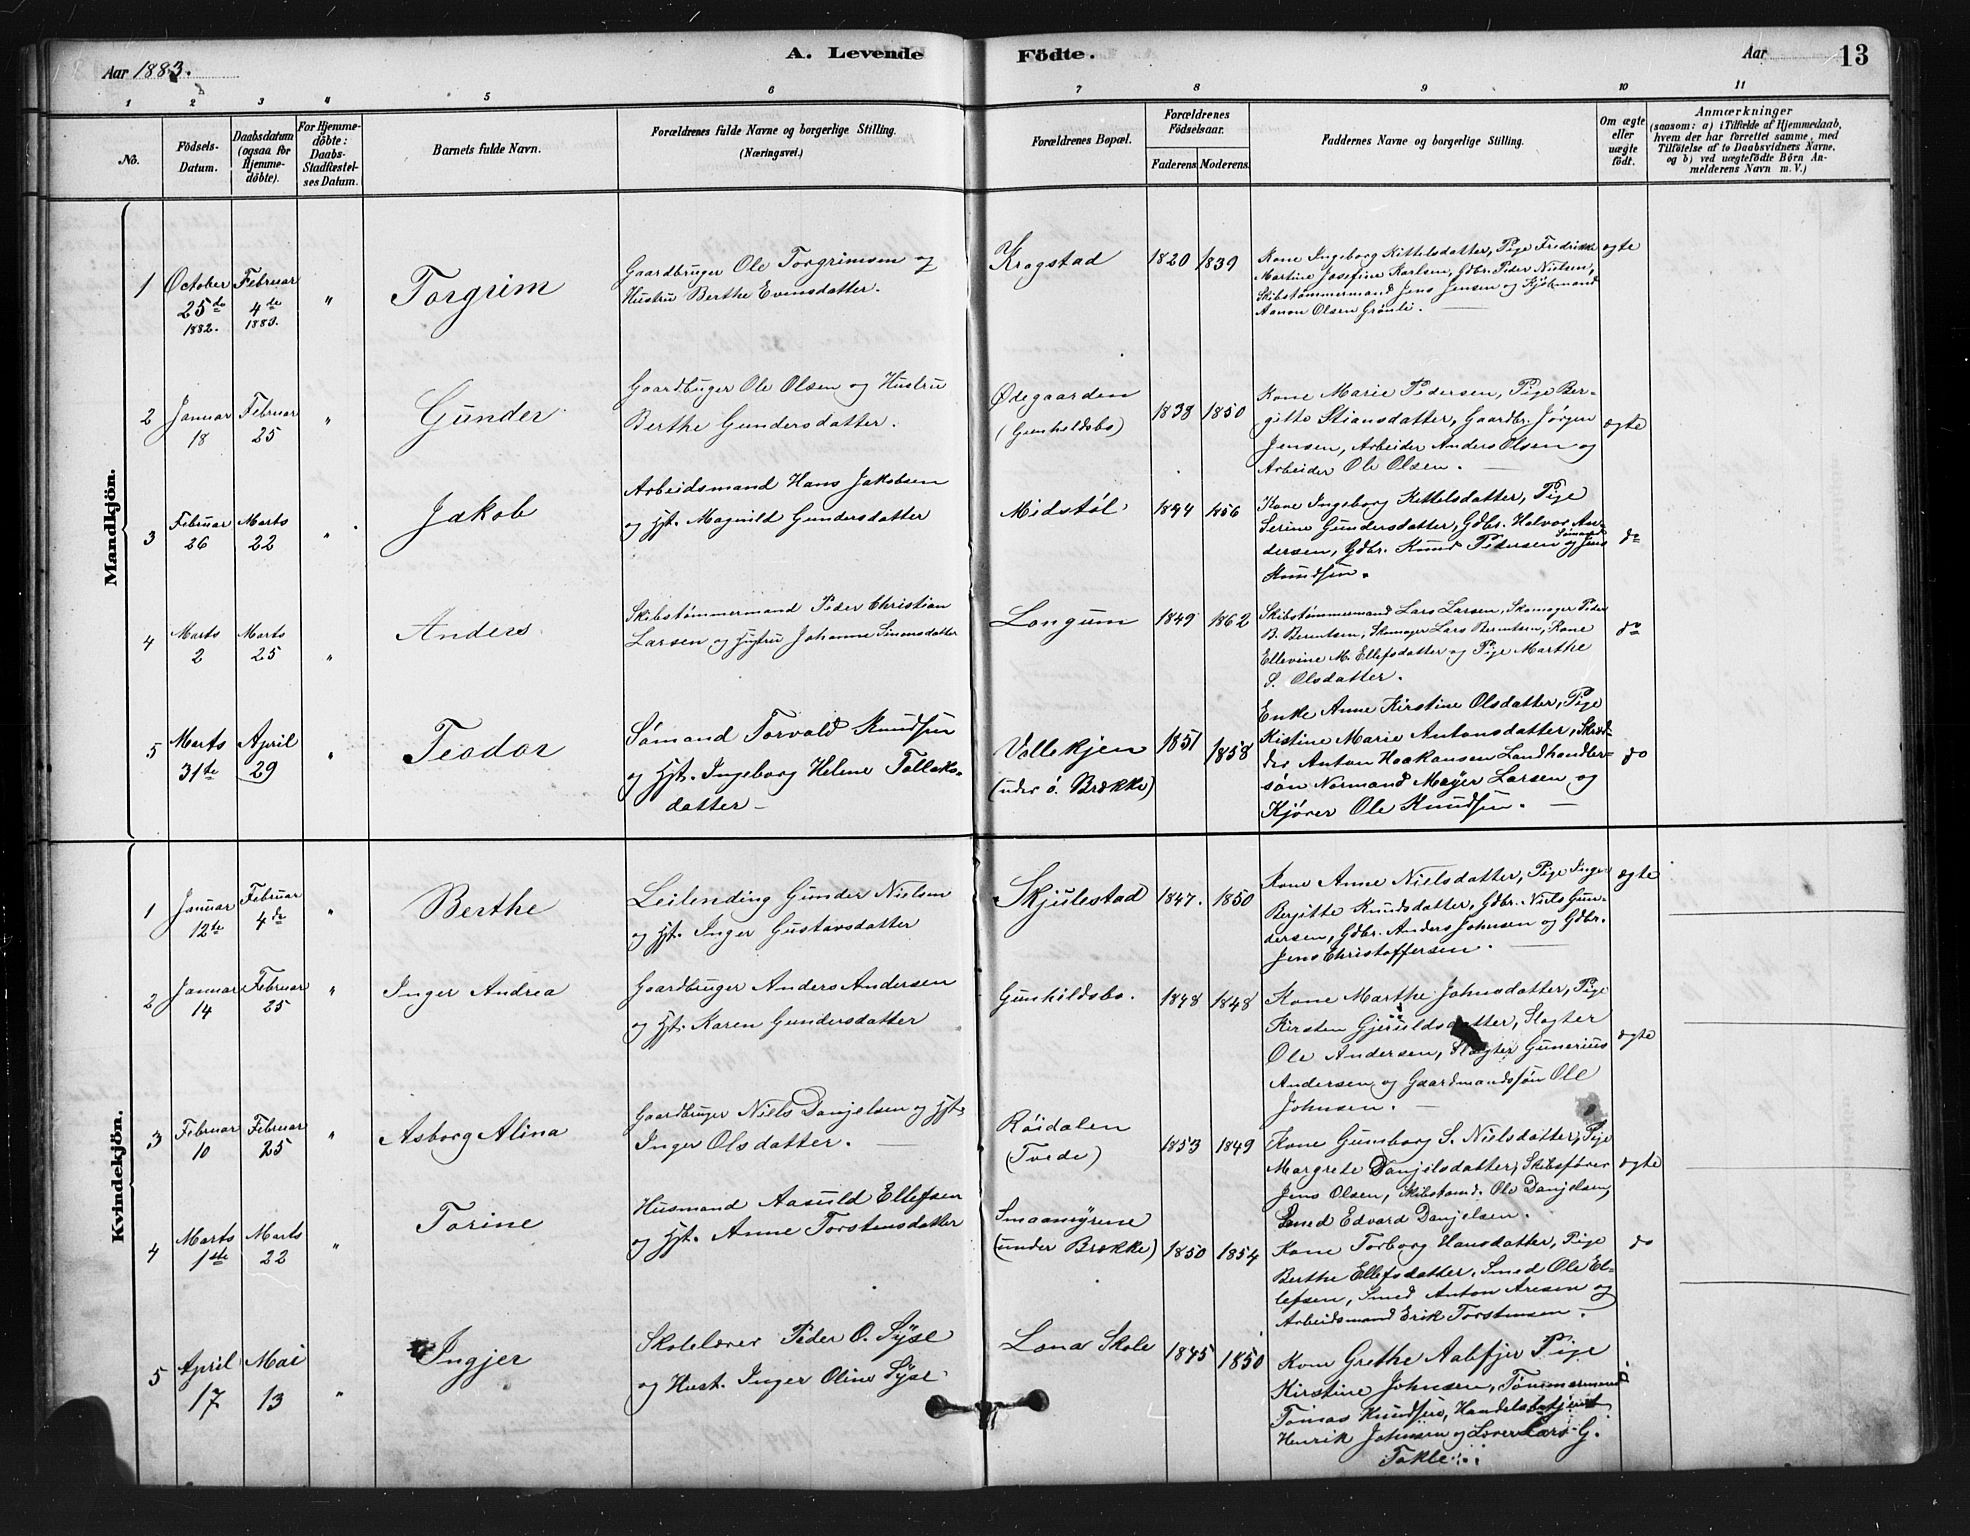 Aar 1883.
A. Levende
Födte.
Aar
13
1 2 3 4 5 6 7 8 9 10 11
No.
Födsels-
Datum.
Daabsdatum
(ogsaa for
Hjemme-
döbte).
For Hjemme-
döbte:
Daabs-
Stadfæstel-
ses Datum.
Barnets fulde Navn.
Forældrenes fulde Navne og borgerlige Stilling.
(Næringsvei.)
Forældrenes Bopæl.
Forældrenes
Födselsaar.
Faderens. Moderens.
Faddernes Navne og borgerlige Stilling.
Om ægte
eller
uægte
födt.
Anmærkninger
(saasom: a) i Tilfælde af Hjemmedaab,
hvem der har forrettet samme, med
Tilföielse af to Daabsvidners Navne,
og b) ved uægtefödte Börn An-
melderens Navn m. V.)
Mandkjön.
1
October
25de
1882.
Februar
4de
1883.
"
Torgrim
Gaardbruger Ole Torgrimsen og
Hustru Berthe Evensdatter.
Kragstad
1820 1839
Kone Ingeborg Kittelsdatter, Pige Fredrikke
Martine Josefine Karlsen, Gdbr. Peder Nielsen,
Skibstømmermand Jens Jensen og Kjøbmand
Aanon Olsen Grönli.
ægte
2
Januar
18
Februar
25
"
Gunder
Gaardbuger Ole Olsen og Hustru
Berthe Gundersdatter.
Ødegaarden
(Gunhildsbo)
1838 1850
Kone Marie Pedersen, Pige Ber-
gitte Stiansdatter, Gaardbr. Jørgen
Jensen, Arbeider Anders Olsen og
Arbeider Ole Olsen.
ægte
3
Februar
26
Marts
22
"
Jakob
Arbeidsmand Hans Jakobsen
og Hst. Magnild Gundersdatter
Midstöl
1844 1856
Kone Ingeborg Kittelsdatter, Pige
Serine Gundersdatter, Gdbr. Halvor An-
dersen, Gdbr. Knud Pedersen og Sömand Jens
Knudsen.
do
4
Marts
2
Marts
25
"
Anders
Skibstømmermand Peder Christian
Larsen og Hustru Johanne Simonsdatter
Longum
1849 1862
Skibstømmermand Lars Larsen, Skomager Peder
B. Berentsen, Skomager Lars Berentsen, Kone
Ellevine M. Ellefsdatter og Pige Marthe
S. Olsdatter.
do
5
Marts
31te
April
29
"
Teodor
Sömand Torvald Knudsen
og Hst. Ingeborg Helene Tallaks-
datter
Vallekjen
(under ö. Brække)
1851 1858
Enke Anne Kirstine Olsdatter, Pige
Kistine Marie Antonsdatter, Skræd-
der Anton Haakonsen Landhandler-
søn Normand Mejer Larsen og
Kjörer Ole Knudsen.
do
Kvindekjön.
1
Januar
12te
Februar
4de
"
Berthe
Leilending Gunder Nielsen
og Hst. Inger Gustavsdatter
Skjulestad
1847. 1850
Kone Anne Nielsdatter, Pige Inger
Bergitte Knudsdatter, Gdbr. Niels Gun-
dersen, Gdbr. Anders Johnsen og Gdbr.
Jens Christoffersen.
ægte
2
Januar
14
Februar
25
"
Inger Andrea
Gaardbruger Anders Andersen
og Hst. Karen Gundersdatter
Gunhildsbo.
1848 1848
Kone Marthe Johnsdatter, Pige
Kirsten Gjeruldsdatter, Slagter
Ole Andersen, Slagter Gunerius
Andersen og Gaardmandssøn Ole
Johnsen.
ægte
3
Februar
10
Februar
25
"
Asborg Alina
Gaardbruger Niels Danjelsen og Hst.
Inger Olsdatter.
Röidalen
(Tvede)
1853 1849
Kone Gunborg S. Nielsdatter, Pige
Margrete Danjelsdatter, Skibsfører
Jens Olsen, Skibstømd. Ole Danjelsen,
Smed Edvard Danjelsen.
ægte
4
Marts
1ste
Marts
22
"
Torine
Husmand Aasuld Ellefsen
og Hst. Anne Torstensdatter
Smaamyrene
(under Brække)
1850 1854
Kone Torborg Hansdatter, Pige
Berthe Ellefsdatter, Smed Ole El-
lefsen, Smed Anton Aresen og
Arbeidsmand Erik Torstensen.
do
5
April
17
Mai
13
"
Ingjer
Skolelærer Peder O. Syse
og Hust. Inger Oline Syse
Lona Skole
1845 1850
Kone Grethe Aabesjer Pige
Kirstine Johnsen, Tømmermand
Tomas Knudsen, Handelsbetjent
Henrik Johnsen og Lærer Lars G.
Takle